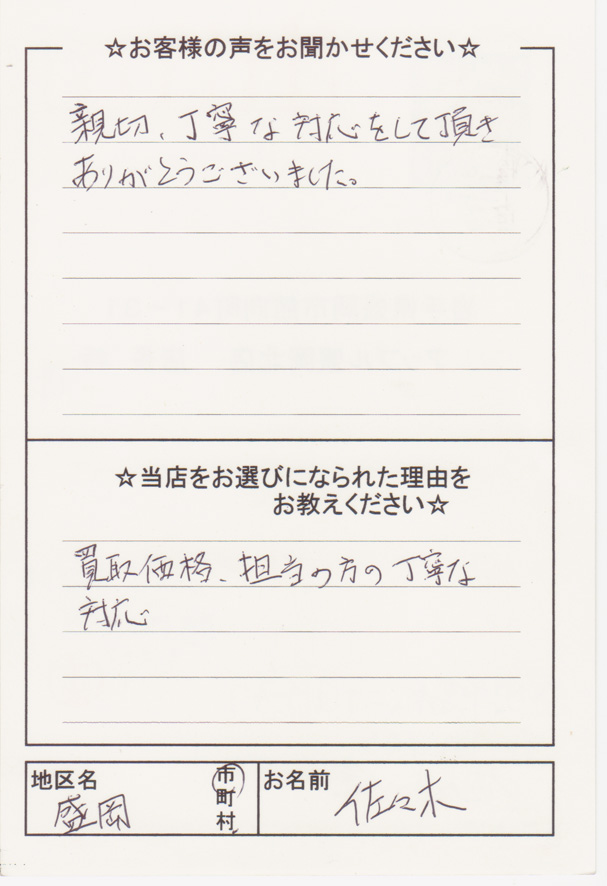 ☆お客様の声をお聞かせください☆
親切、丁寧な対応をして頂き
ありがとうございました。
☆当店をお選びになられた理由を
お教えください☆
買取価格、担当の方の丁寧な
対応
地区名
盛岡
市
町
村
お名前
佐々木